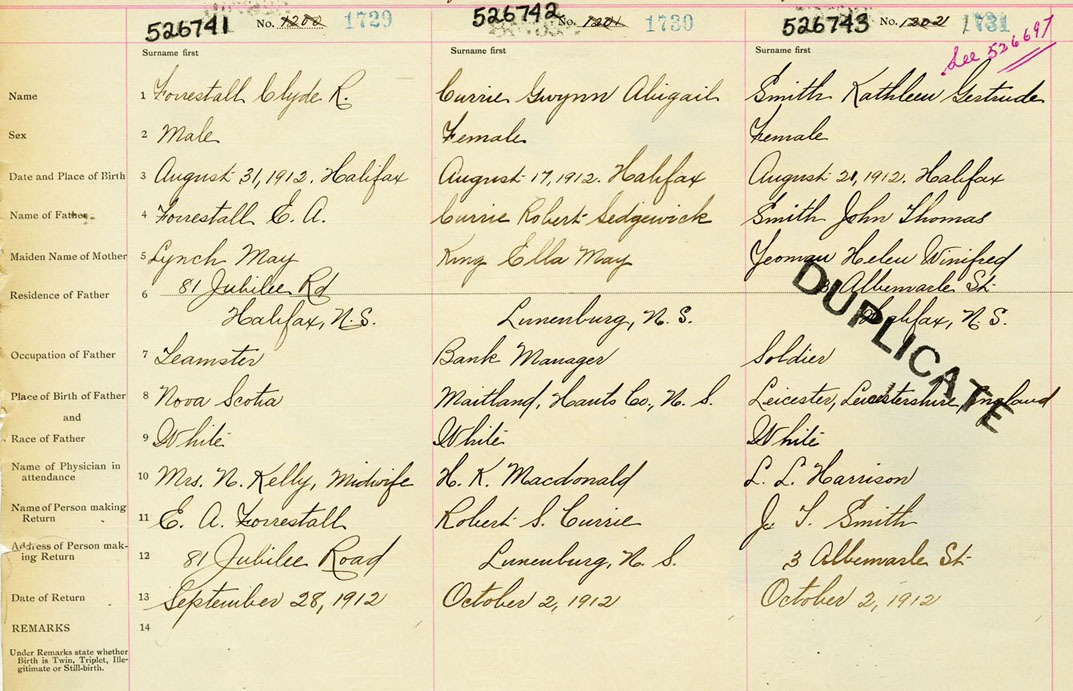 526741 No. 1200 1729 526742 No. 1201 1730 526743 No. 12021 1731
See 526697
Surname first Surname first Surname first
Name 1 Forrestall Clyde R. Currie Gwynn Abigail Smith Kathleen Gertrude
Sex 2 Male Female Female
Date and Place of Birth 3 August 31, 1912. Halifax August 17, 1912. Halifax August 21, 1912. Halifax
Name of Father 4 Forrestall E. A. Currie Robert Sedgewick Smith John Thomas
Maiden Name of Mother 5 Lynch May King Ella May Yeoman Helen Winifred
Residence of Father 6 81 Jubilee Rd 3 Albemarle St.
Halifax, N.S. Lunenburg, N. S. Halifax, N. S.
DUPLICATE
Occupation of Father 7 Teamster Bank Manager Soldier
Place of Birth of Father 8 Nova Scotia Maitland, Hants Co., N. S. Leicester, Leicestershire, England
and
Race of Father 9 White White White
Name of Physician in
attendance 10 Mrs. N. Kelly, Midwife H. K. Macdonald L. L. Harrison
Name of Person making
Return 11 E. A. Forrestall Robert S. Currie J. T. Smith
Address of Person mak-
ing Return 12 81 Jubilee Road Lunenburg, N. S. 3 Albemarle St.
Date of Return 13 September 28, 1912 October 2, 1912 October 2, 1912
REMARKS 14
Under Remarks state whether
Birth is Twin, Triplet, Ille-
gitimate or Still-birth.